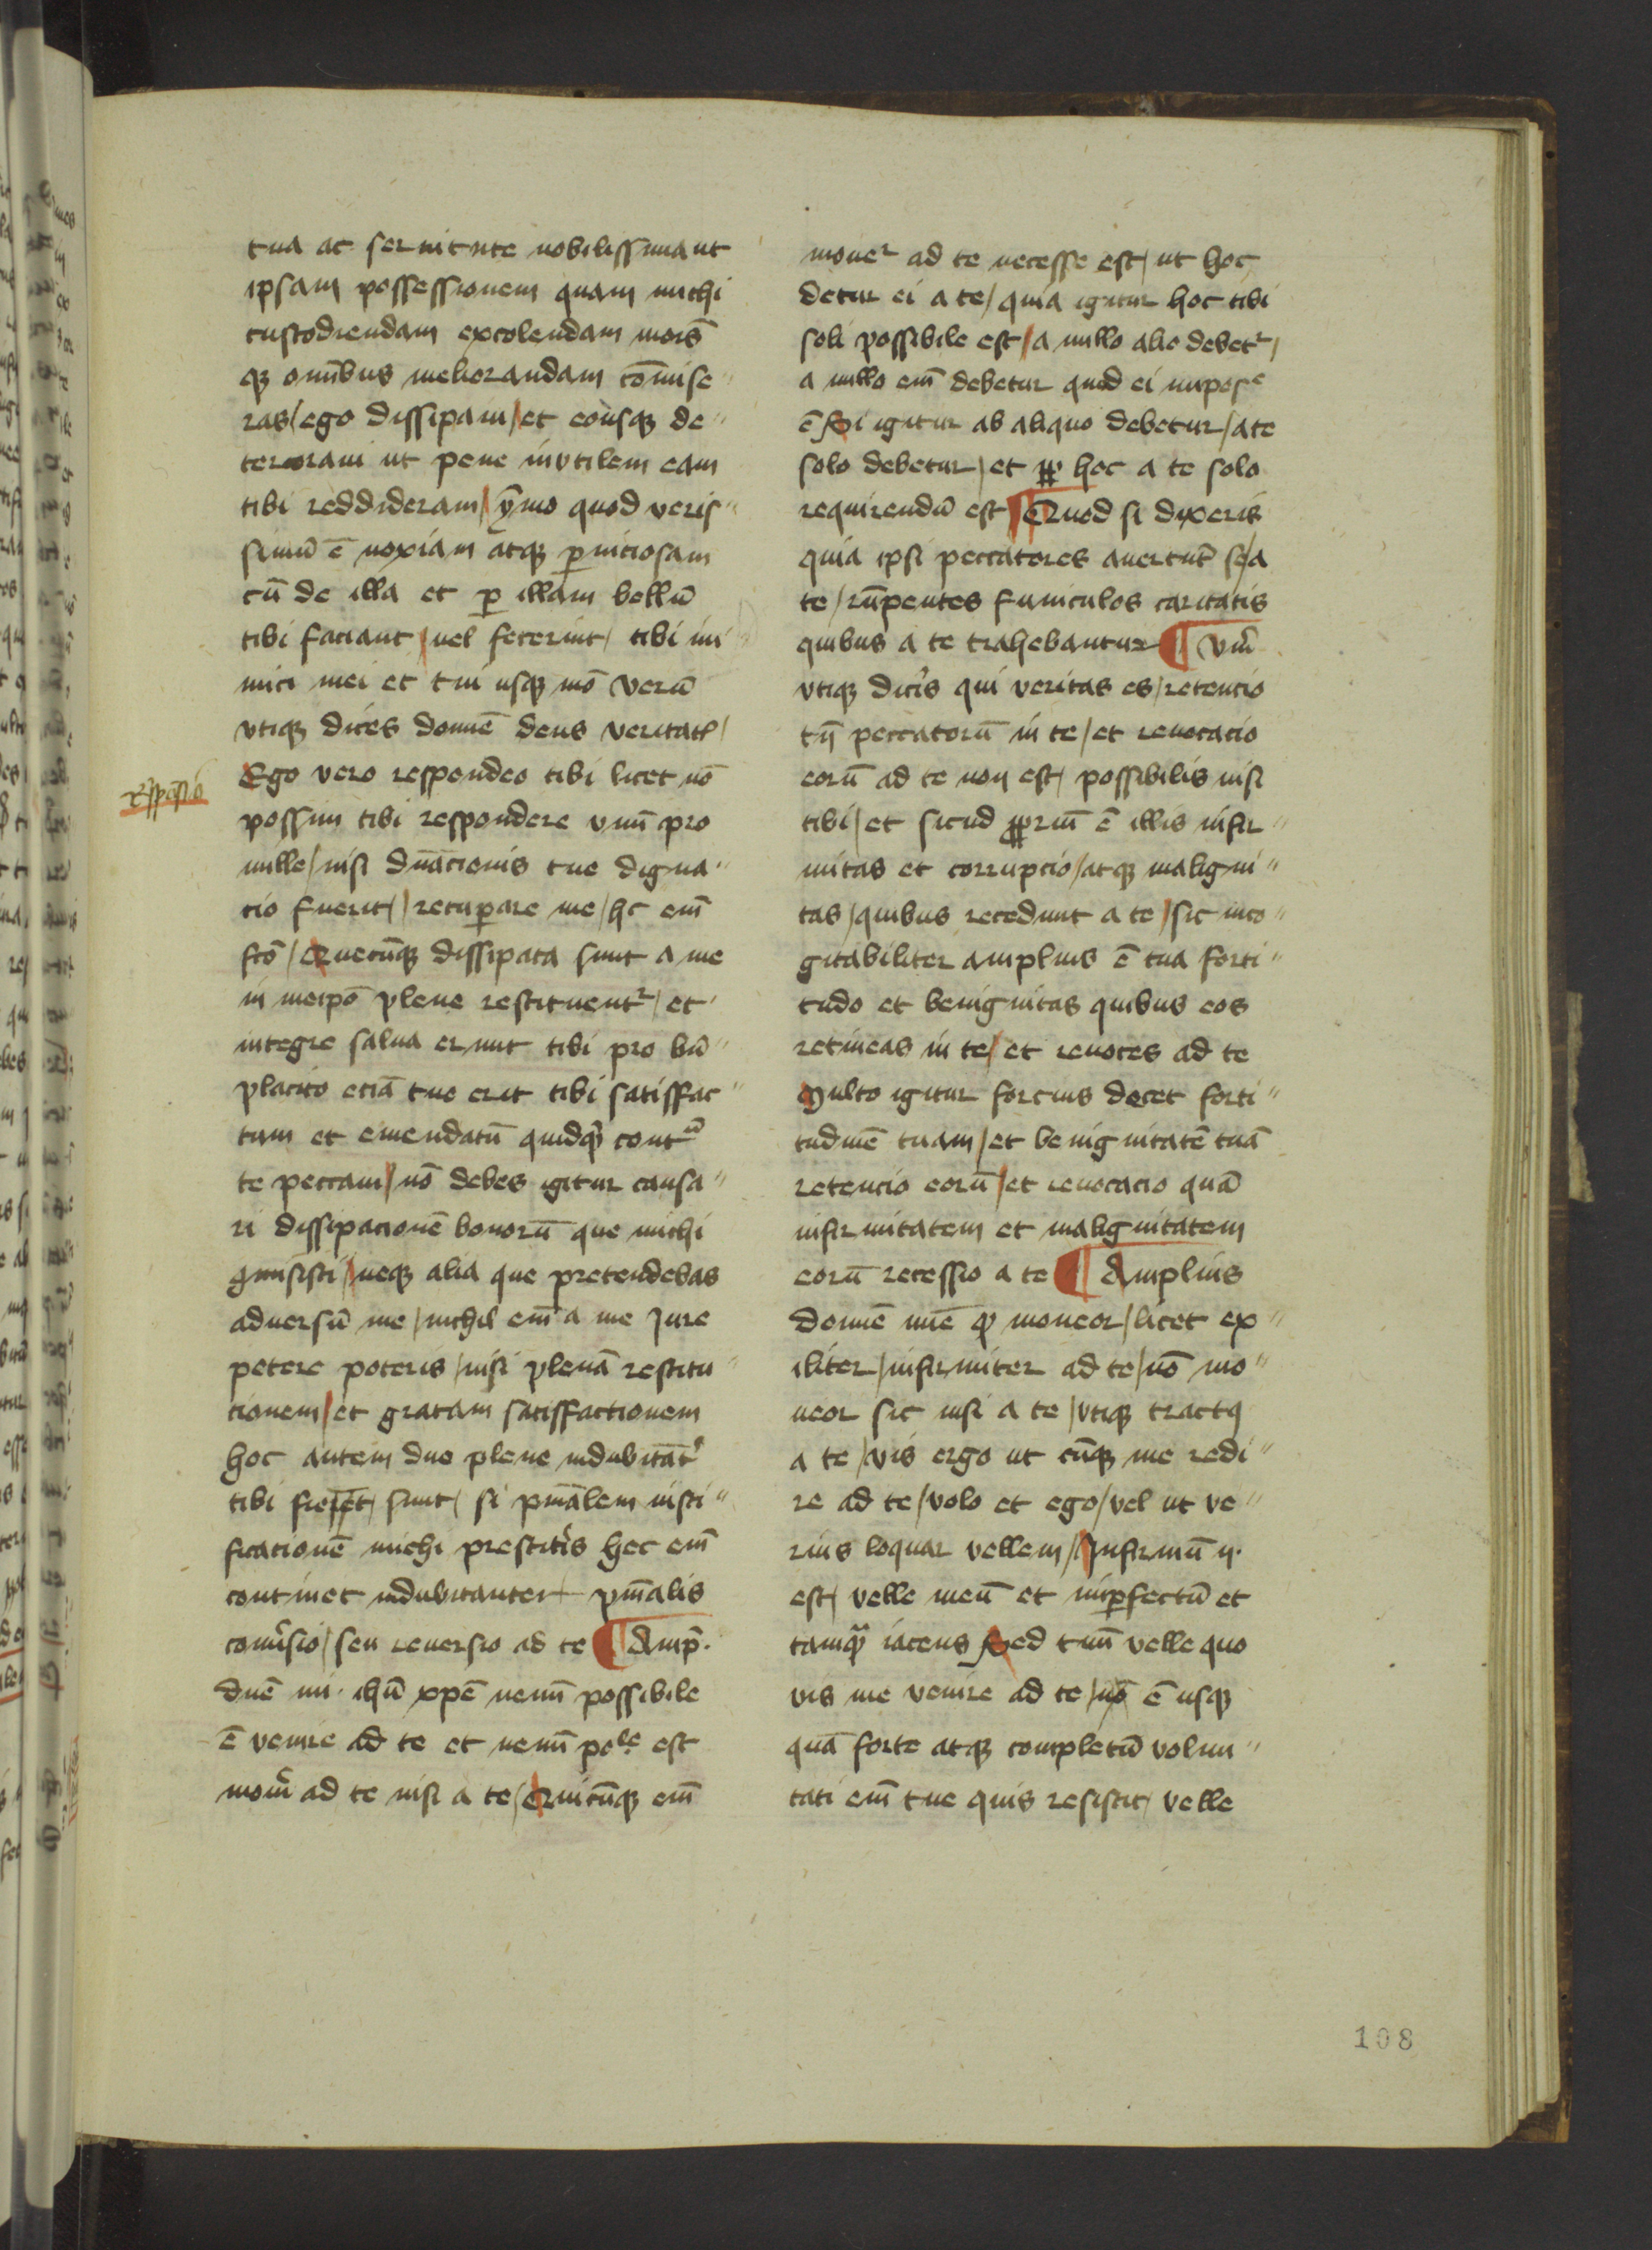 tua ac seruitute nobilissima ut
ipsam possessionem quam michi
custodiendam excolendam mori᷒
qꝫ omībus meliorandam cōmise〃
ras / ego dissipaui / et eousqꝫ de〃
terioraui ut pene inutilem eam
tibi reddideram / ymo quod veris〃
simū ē noxiam atqꝫ ꝑniciosam
cū de illa et ꝑ illam bellū
tibi faciant / uel fecerint / tibi ini
mici mei et tui usqꝫ mō Verū
vtiqꝫ dices domīe deus veritatꝭ /
Rīspōsio
Ego vero respondeo tibi licet nō
possim tibi respondere vnū pro
mille / nisi dn̄acionis tue digna〃
cio fuerit / recuꝑare me / hc em̄
fcō / Quecūqꝫ dissipata sunt a me
in meipō plene restituentʳ / et
integre salua erunt tibi pro bn̄〃
placito eciā tuo erit tibi satisffac〃
tum et emendatū quidqͥd cont͛
te peccaui / nō debes igitur causa〃
ri dissipacionē bonorū que michi
ꝯmisisti / neqꝫ alia que pretendebas
aduersū me / nichil em̄ a me Jure
petere poteris / nisi plenā restitu〃
cionem / et gratam satisffactionem
hoc autem duo plene indubitāt͛
tibi sunt / si pn̄alem iusti〃
ficationē michi prestit͛is hec em̄
continet indubitanter pn̄alis
con͛usio / seu reuersio ad te ¶ Amp̄.
dn̄e mi ihū xpē nem̄ possibile
ē venire ad te et nem̄ poˡᵉ est
mou͛i ad te nisi a te / Cuicūqꝫ em̄
moueʳ ad te necesse est / ut hoc
detur ei a te / quia igitur hoc tibi
soli possibile est / a nullo alio debetʳ /
a nullo em̄ debetur quod ei inposᵉ
ē Si igitur ab aliquo debetur / a te
solo debetur / et ꝓpͭ hoc a te solo
requirendū est ¶ Quod si dixeris
quia ipsi peccatores auertūt se / a
te / rūpentes funiculos caritatis
quibus a te trahebantur ¶ Vm̄
vtiqꝫ dic͛is qui veritas es / retencio
tn̄ peccatorū in te / et reuocacio
eorū ad te non est / possibilis nisi
tibi / et sicud ꝓpriū ē illis infir〃
mitas et corrupcio / atqꝫ maligni〃
tas / quibus recedunt a te / sic inco〃
gitabiliter amplius ē tua forti〃
tudo et benignitas quibus eos
retineas in te / et reuoces ad te
Multo igitur forcius decet forti〃
tudinē tuam / et benignitatē tuā
retencio eorū / et reuocacio quā
infirmitatem et malignitatem
eorū recessio a te ¶ Amplius
domīe mīe qͩ moueor / licet ex〃
iliter / infirmiter ad te / nō mo〃
ueor sic nisi a te / vtiqꝫ tractꝯ
a te / vis ergo ut cūqꝫ me redi〃
re ad te / volo et ego / vel ut ve〃
rius loquar vellem / Infirmū n̄.
est / velle meū et inꝑfectū et
tamqͣ iacens Sed tuū velle quo
vis me venire ad te / nō ē usqꝫ
quā forte atqꝫ completū volun〃
tati em̄ tue quis resistit / velle
108